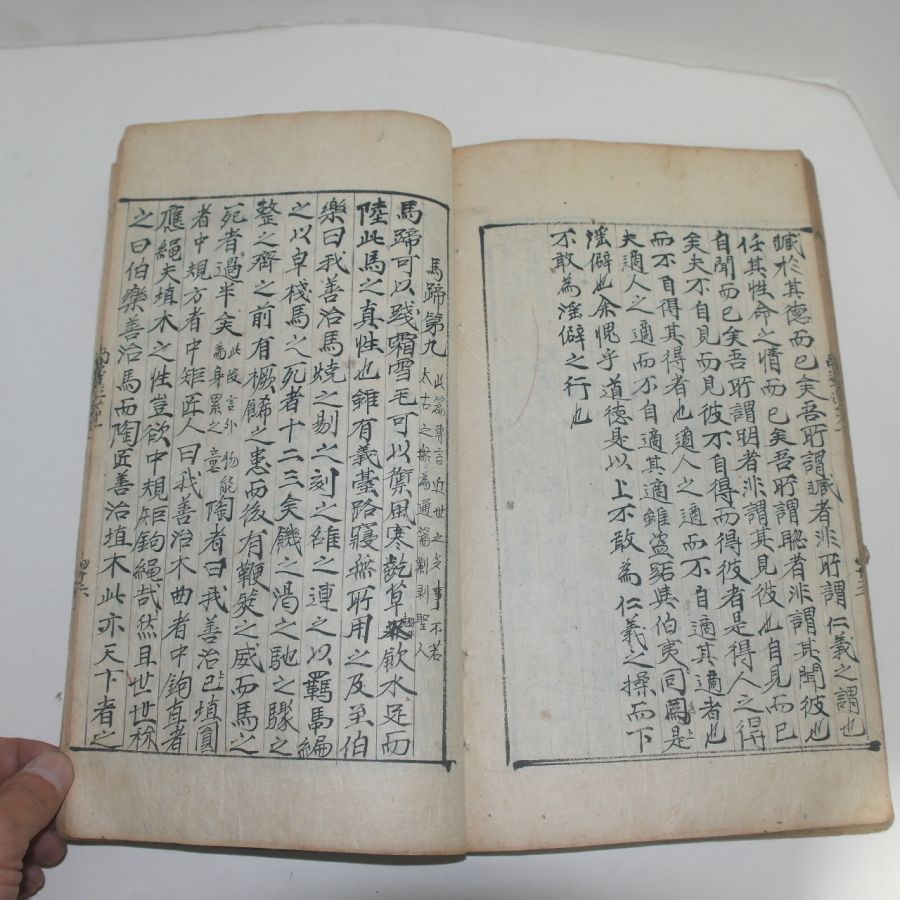 臧於其德而已矣吾所謂臧者非所謂仁義之謂也
任其性命之情而已矣吾所謂聡者非謂其聞彼也
自聞而已矣吾所謂明者非謂其見彼也自見而已
矣夫不自見而見彼不自得而得彼者是得人之得
而不自得其得者也適人之適而不自適其適者也
夫適人之適而不自適其適雖盗跖與伯夷同為是
淫僻也余愧乎道德是以上不敢為仁義之操而下
不敢為淫僻之行也
馬蹄第九
此篇專言近世之多事不若
太古之無為通篇剽剥聖人
馬蹄可以踐霜雪毛可以禦風寒齕草飲水足而
陸此馬之真性也雖有義臺路寢無所用之及至伯
樂曰我善治馬燒之剔之刻之雒之連之以羈馬編
之以皁棧馬之死者十二三矣饑之渴之馳之驟之
整之齊之前有橛飾之患而後有鞭筴之威而馬之
死者過半矣
此段言外物能
為身累之意
陶者曰我善治埴圓
者中規方者中矩匠人曰我善治木曲者中鉤直者
應繩夫埴木之性豈欲中規矩鉤繩哉然且世世称
之曰伯樂善治馬而陶匠善治埴木此亦天下者之
四十六